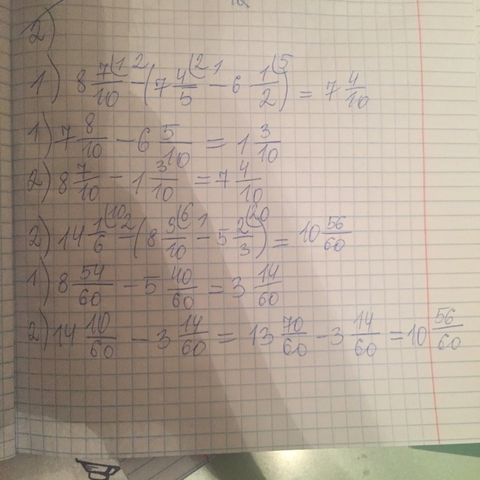 2)
1) 8 7/10 (1 − 2 (7 4/5 (2 − 1 6 1/2 (5) = 7 4/10
1) 7 8/10 − 6 5/10 = 1 3/10
2) 8 7/10 − 1 3/10 = 7 4/10
2) 14 1/6 (10 − 2 (8 9/10 (6 − 1 5 2/3 (20) = 10 56/60
1) 8 54/60 − 5 40/60 = 3 14/60
2) 14 10/60 − 3 14/60 = 13 70/60 − 3 14/60 = 10 56/60